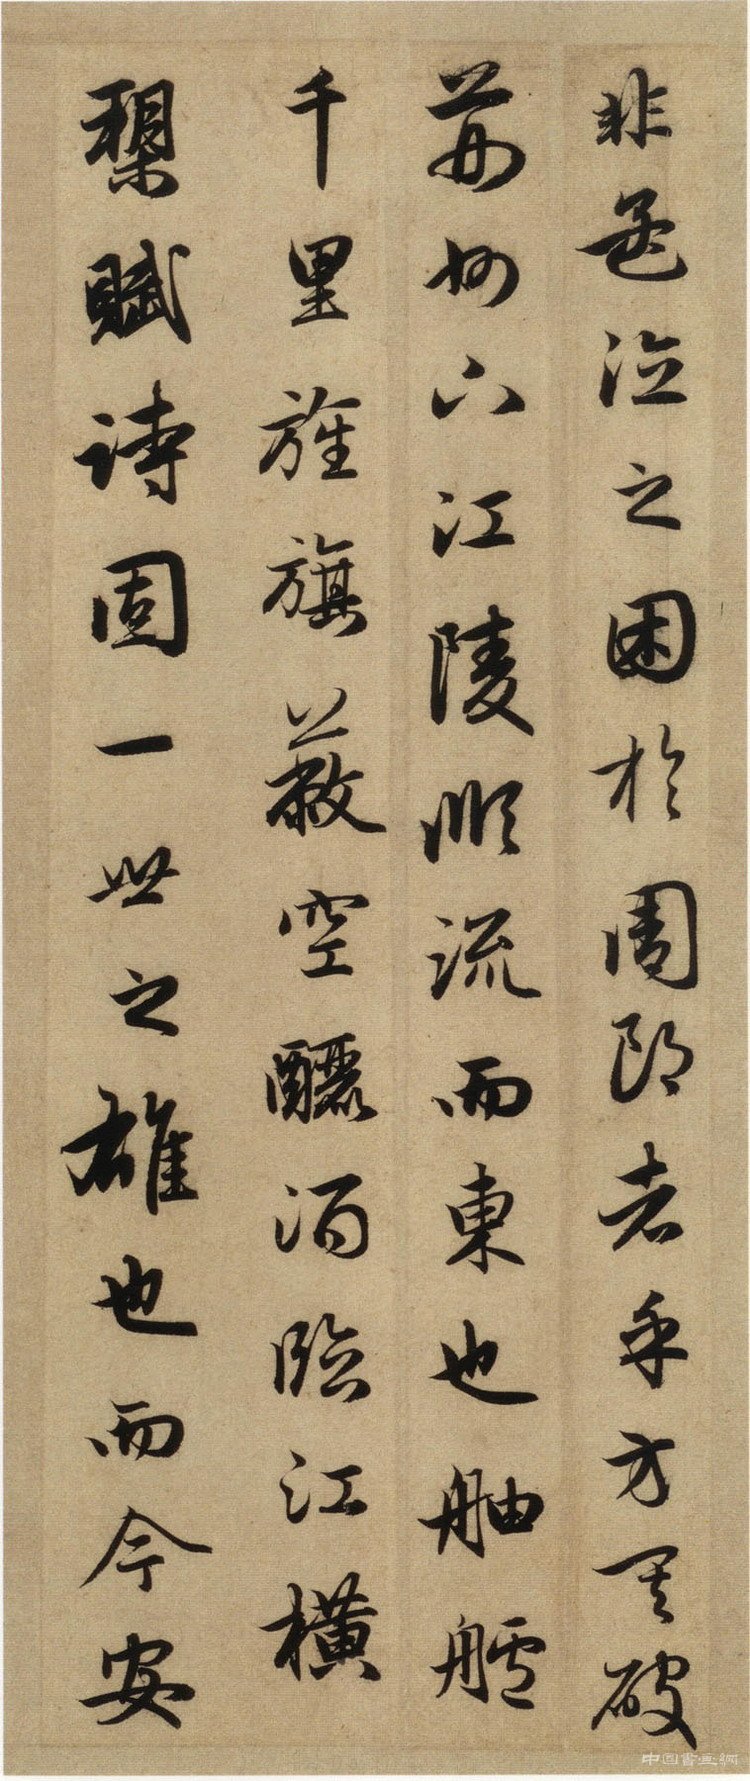 非孟德之困於周郎者乎方其破
荊州下江陵順流而東也舳艫
千里旌旗蔽空釃酒臨江橫
槊賦詩固一世之雄也而今安
中国書画網